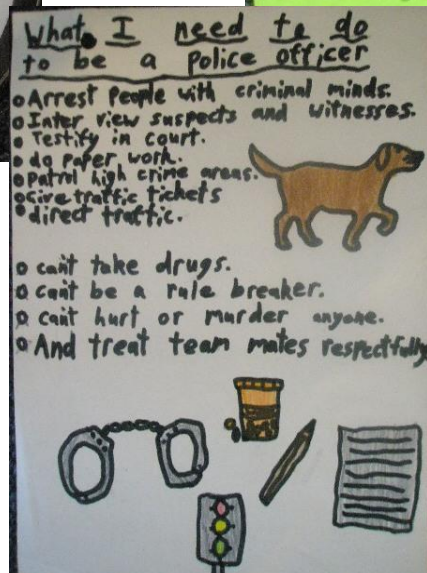 What I need to do
to be a police officer
Arrest people with criminal minds.
Inter view suspects and witnesses.
Testify in court.
do paper work.
Patrol high crime areas.
Give traffic tickets
direct traffic.
can't take drugs.
can't be a rule breaker.
can't hurt or murder anyone.
And treat team mates respectfully